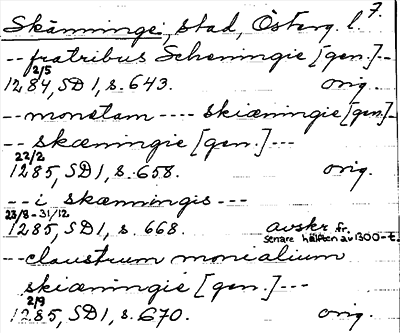 Skänninge, stad, Österg. l. 7.
-- fratribus Scheningie [gen.] --
2/5
1284, SD 1, s. 643. orig.
-- monetam ---- skiæningie [gen.] --
-- skæningie [gen.] ---
22/2
1285, SD 1, s. 658. orig.
-- i skænningis ---
23/8-31/12
1285, SD 1, s. 668. avskr. fr.
senare hälften av 1300-t.
-- claustrum monialium
skiæningie [gen.] ---
2/9
1285, SD 1, s. 670. orig.